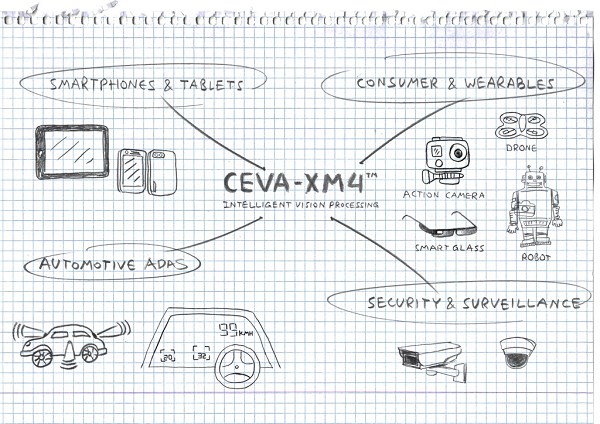 SMARTPHONES & TABLETS
CONSUMER & WEARABLES
DRONE
CEVA-XM4™
INTELLIGENT VISION PROCESSING
ACTION CAMERA
SMART GLASS
ROBOT
AUTOMOTIVE ADAS
SECURITY & SURVEILLANCE
99 KMH